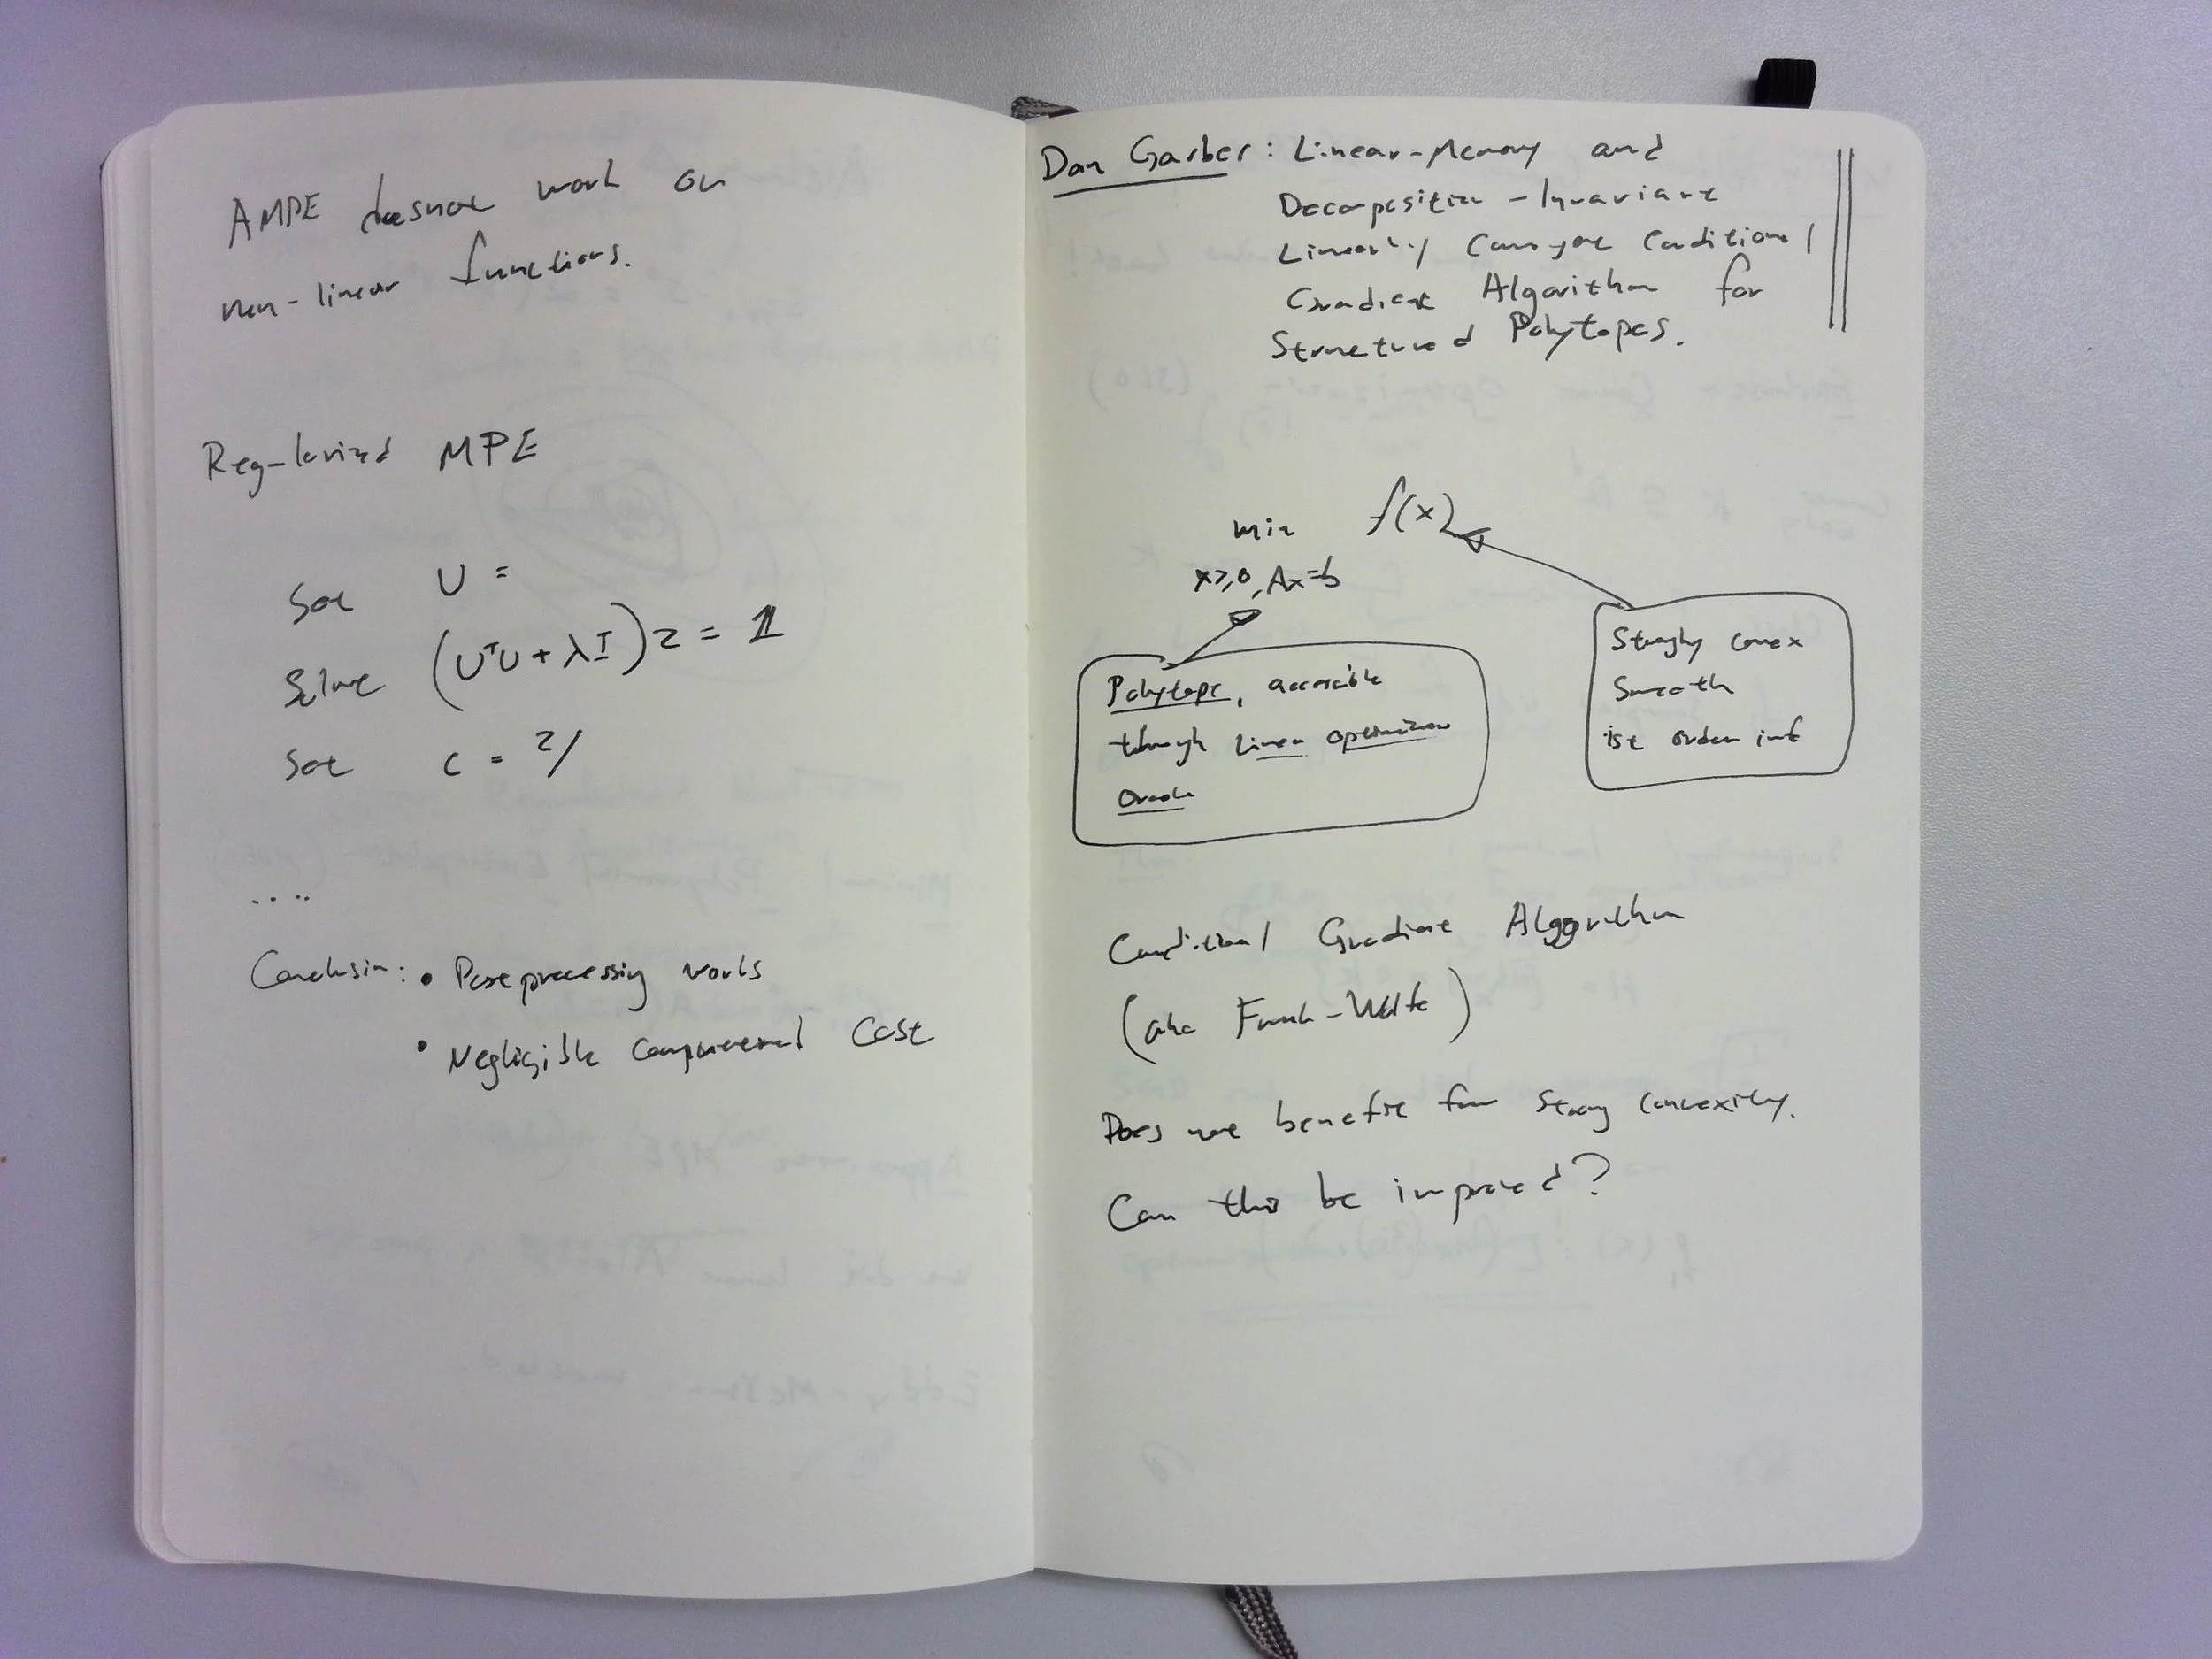 AMPE doesnot work on
non-linear functions.
Regularized MPE
Set U =
Solve (UᵀU + λI) z = 𝟙
Set c = z/
....
Conclusion: • Postprocessing works
• Negligible computational cost
Dan Garber: Linear-Memory and
Decomposition-Invariant
Linearly Convergent Conditional
Gradient Algorithm for
Structured Polytopes.
min f(x)
x≥0, Ax=b
Polytope, accessible
through Linear optimization
Oracle
Strongly convex
Smooth
1st order inf
Conditional Gradient Algorithm
(aka Frank-Wolfe)
Does not benefit from strong convexity.
Can this be improved?